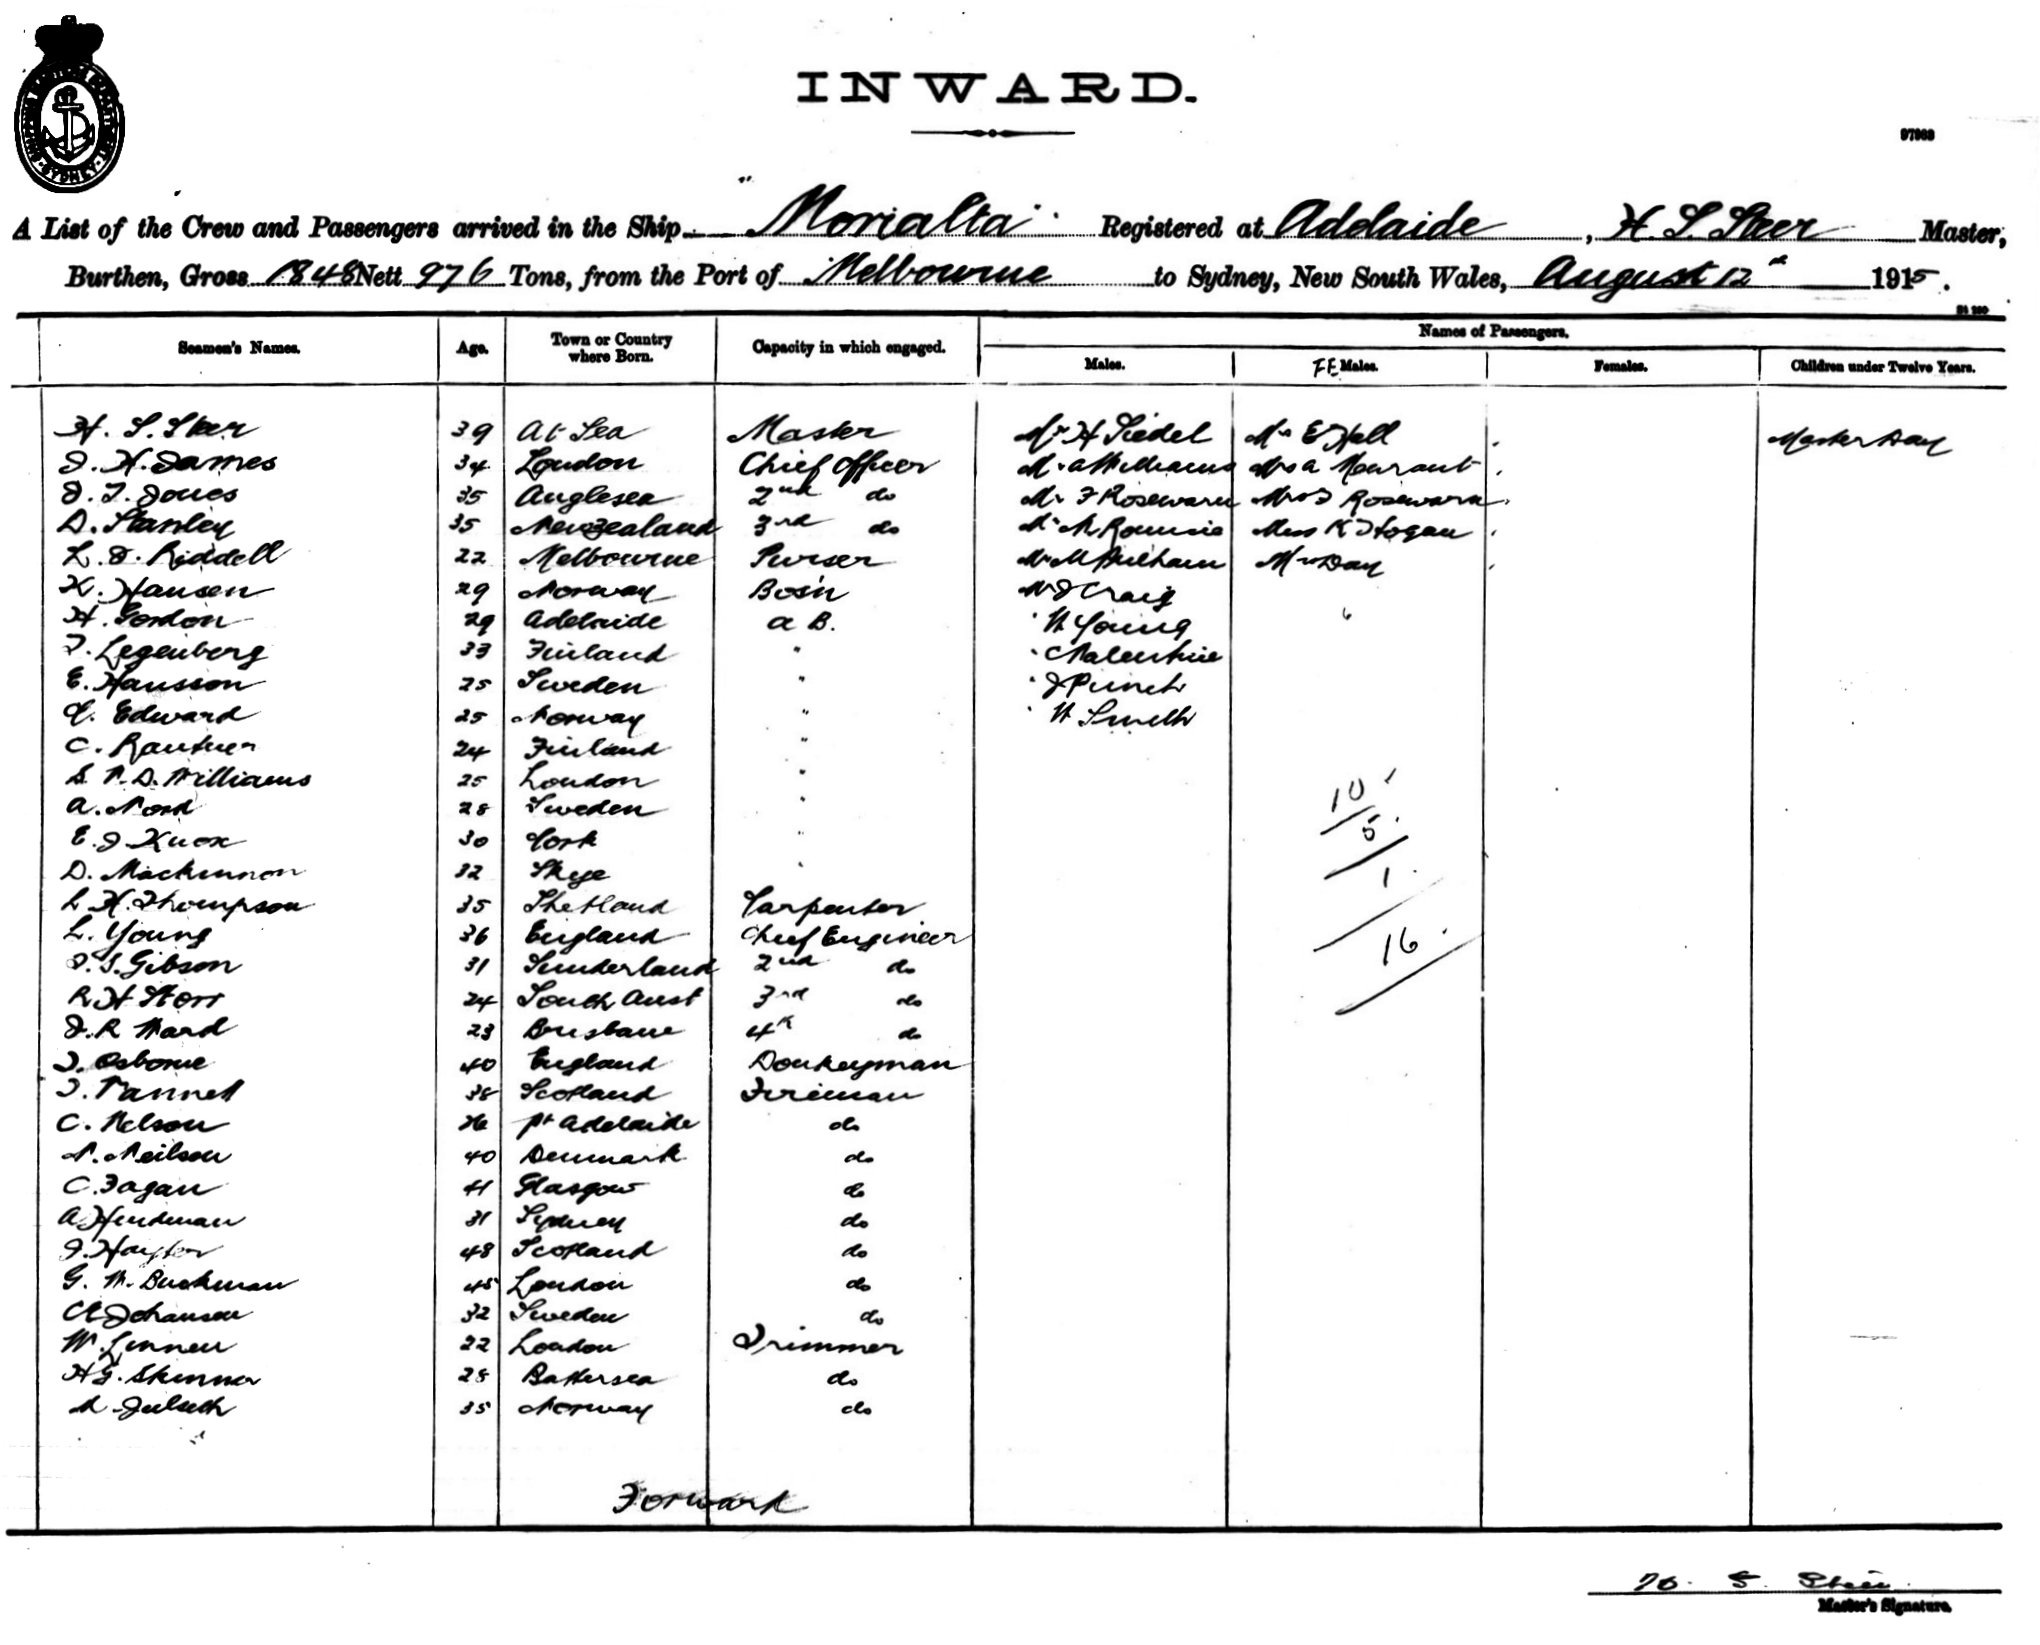 INWARD.
97963
A List of the Crew and Passengers arrived in the Ship "Morialta" Registered at Adelaide, H. S. Steer Master,
Burthen, Gross 1848 Nett 976 Tons, from the Port of Melbourne to Sydney, New South Wales, August 12th 1915.
Names of Passengers.
Seamen's Names. Age. Town or Country where Born. Capacity in which engaged. Males. FE Males. Females. Children under Twelve Years.
H. S. Steer 39 At Sea Master Mr H Siedel Mrs E Hall Master Day
J. H. James 34 London Chief Officer Mr A Williams Mrs A
J. T. Jones 35 Anglesea 2nd do Mr F Rosewarn Mrs J Rosewarn
D. Stanley 35 New Zealand 3rd do Mr Miss K Hogan
L. D. Riddell 22 Melbourne Purser Mr Mrs Day
K. Hansen 29 Norway Bos'n Mr J Craig
H. Gordon 29 Adelaide A B. " W Young
T. Legenberg 33 Finland " " C Valentine
E. Hansson 25 Sweden " " J Punch
C. Edward 25 Norway " " W Smith
C. 24 Finland "
S. W. D. Williams 25 London "
A. Nord 28 Sweden "
E. J. Knox 30 Cork "
D. Mackinnon 32 Skye "
L. H. Thompson 35 Shetland Carpenter
L. Young 36 England Chief Engineer
J. S. Gibson 31 Sunderland 2nd do
R H Storr 24 South Aust 3rd do
J. R Ward 23 Brisbane 4th do
J. Osborne 40 England Donkeyman
J. Pannell 38 Scotland Fireman
C. Nelson 26 Pt Adelaide do
N. Neilson 40 Denmark do
C. Fagan 41 Glasgow do
A Hindman 31 Sydney do
J. Hayter 48 Scotland do
G. W. Buckman 45 London do
C A Johansen 32 Sweden do
W. Linnen 22 London Trimmer
H G. Skinner 28 Battersea do
35 Norway do
10
5
1
16
Forward
H. S. Steer
Master's Signature.